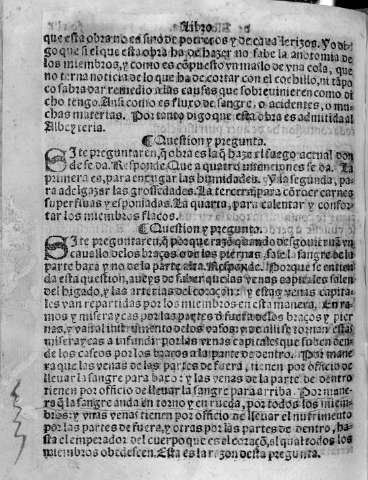 Libro
que esta obra no es sino de potreros y de caualerizos. Yo di-
go que si el que esta obra ha de hazer no sabe la anotomia de
los miembros, y como es cõpuesto vn maslo de vna cola, que
no terna noticia de lo que ha de cortar con el cochillo, ni tãpo
co sabra dar remedio a las causas que sobreuinieren como di
cho tengo. Ansi como es fluxo de sangre, o acidentes, o mu-
chas materias. Por tanto digo que esta obra es admitida al
Albeyteria.
¶ Question y pregunta.
SI te preguntaren, q̃ obra es la q̃ haze el fuego actual don
de se da. Responde. Que a quatro intenciones se da. La
primera es, para enxugar las humidades. Y la segunda, pa-
ra adelgazar las grossedades. La tercera para corroer carnes
superfluas y esponiadas. La quarta, para calentar y confor-
tar los miembros flacos.
¶ Question y pregunta.
SI te preguntaren, q̃ por que razõ quando desgouiernã vn
cauallo de los braços o de las piernas, sale la sangre de la
parte baxa y no de la parte alta. Responde. Porque se entien
da esta question, aueys de saber que las venas capitales salen
del higado, y las arterias del coraçõ: y estas venas capita-
les van repartidas por los miembros en esta manera. En ra-
mos y miseraycas por las partes de fuera de los braços y pier
nas, y van al instrumento de los vasos: y de alli se tornan estas
miseraycas a infundir por las venas capitales que suben den-
de los cascos por los braços a la parte de dentro. Por mane
ra que las venas de las partes de fuera, tienen por officio de
lleuar la sangre para baxo: y las venas de la parte de dentro
tienen por officio de lleuar la sangre para arriba. Por mane-
ra q̃ la sangre anda en torno y en rueda, por todos los miem-
bros: y vnas venas tienen por officio de lleuar el nutrimento
por las partes de fuera, y otras por las partes de dentro, ha-
sta el emperador del cuerpo que es el coraçõ, al qual todos los
miembros obedescen. Esta es la razon desta pregunta.